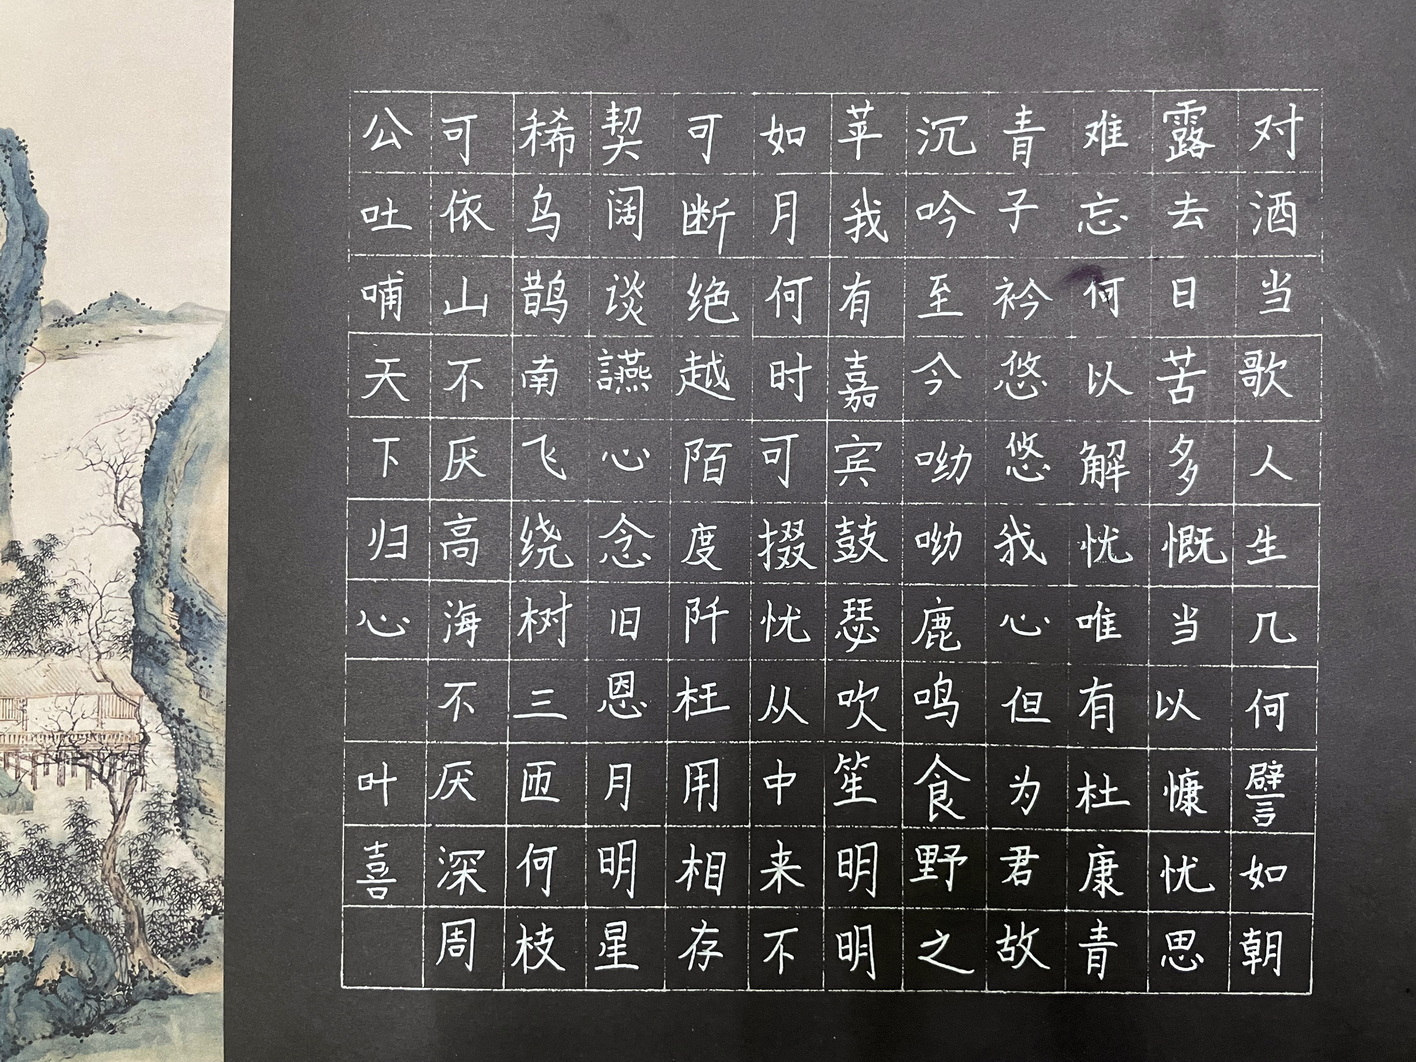 对酒当歌人生几何譬如朝
露去日苦多慨当以慷忧思
难忘何以解忧唯有杜康青
青子衿悠悠我心但为君故
沉吟至今呦呦鹿鸣食野之
苹我有嘉宾鼓瑟吹笙明明
如月何时可掇忧从中来不
可断绝越陌度阡枉用相存
契阔谈讌心念旧恩月明星
稀乌鹊南飞绕树三匝何枝
可依山不厌高海不厌深周
公吐哺天下归心 叶喜